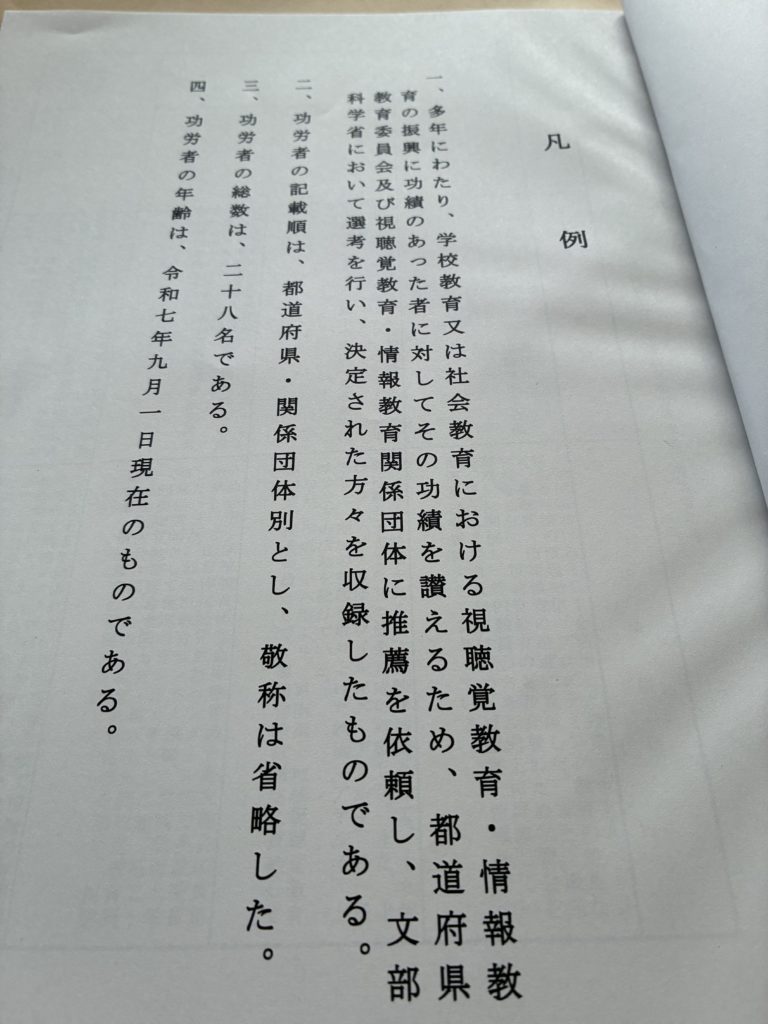 凡例
一、多年にわたり、学校教育又は社会教育における視聴覚教育・情報教
育の振興に功績のあった者に対してその功績を讃えるため、都道府県
教育委員会及び視聴覚教育・情報教育関係団体に推薦を依頼し、文部
科学省において選考を行い、決定された方々を収録したものである。
二、功労者の記載順は、都道府県・関係団体別とし、敬称は省略した。
三、功労者の総数は、二十八名である。
四、功労者の年齢は、令和七年九月一日現在のものである。